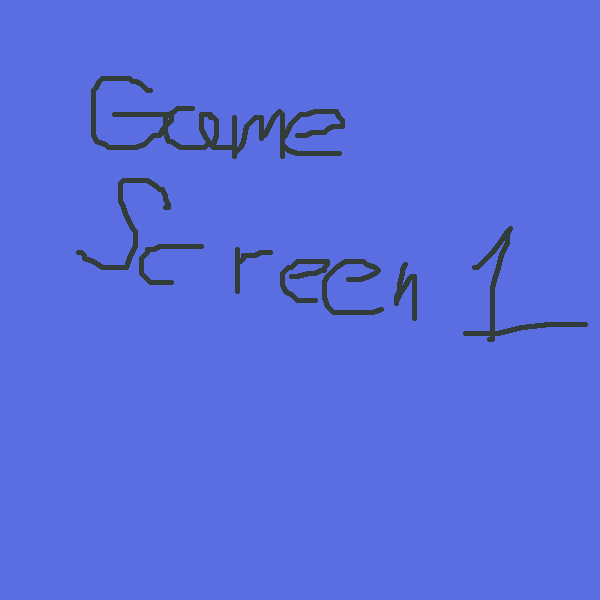 Game
Screen 1